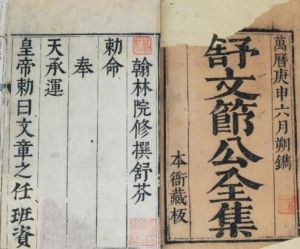 萬曆庚申六月朔鐫
舒文節公全集
本衙藏板
翰林院修撰舒芬
勅命
奉
天承運
皇帝勅曰文章之任班資